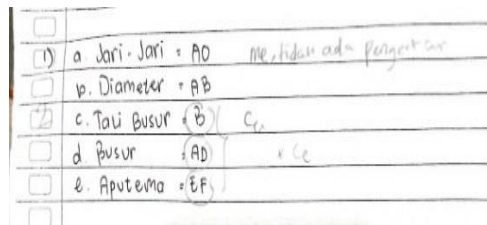 1) a. Jari-Jari = AO me, tidak ada pengertian
b. Diameter = AB
2 c. Tali Busur = B Ce,
d. Busur = AD + Ce
e. Aputema = EF